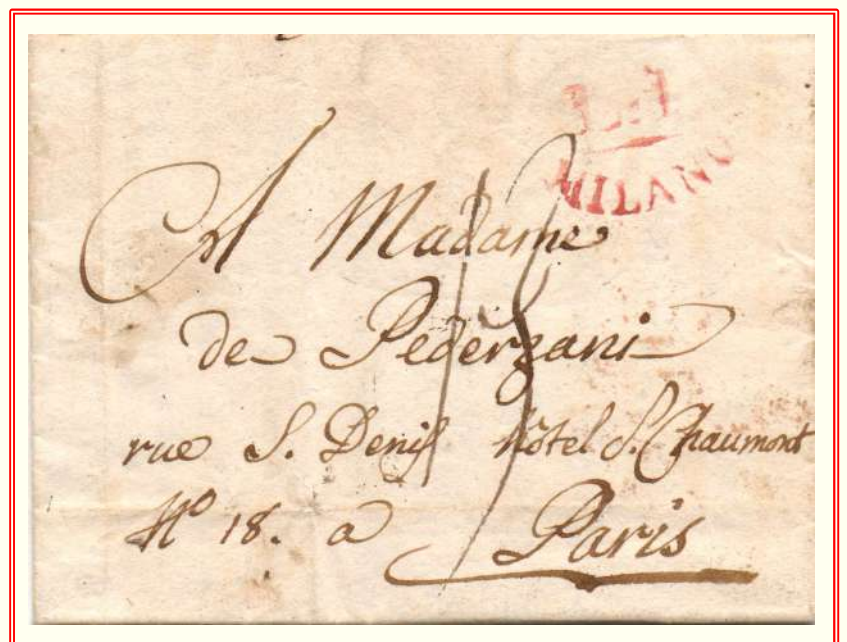 L.I
MILANO
A Madame
de Pederzani
rue S. Denis hôtel S. Chaumont
No 18. a Paris